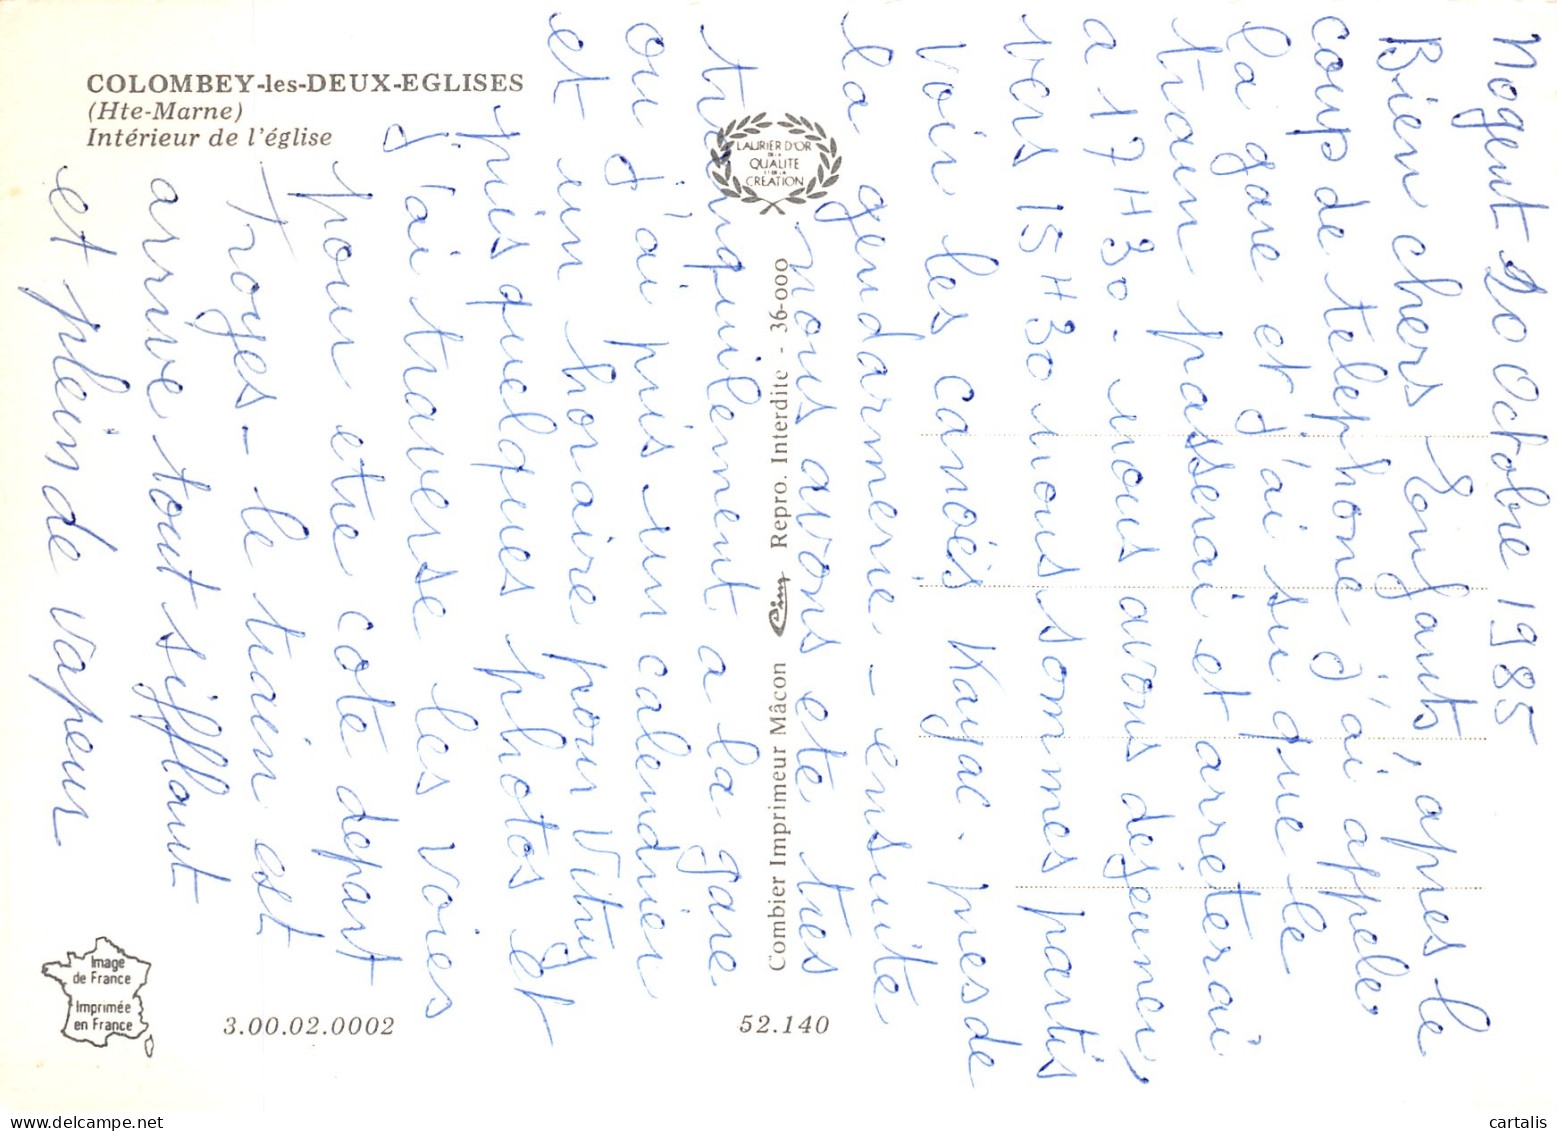 COLOMBEY-les-DEUX-EGLISES
(Hte-Marne)
Intérieur de l'église
LAURIER D'OR
DE LA
QUALITE
ET DE LA
CREATION
Combier Imprimeur Mâcon Cim Repro. Interdite - 36-000
Image
de France
Imprimée
en France
3.00.02.0002
52.140
Nogent 20 Octobre 1985
Bien chers Enfants, apres le
coup de telephone j'ai appele
la gare et j'ai su que le
train passerai et arreterai
a 17H30 - nous avons dejeuner,
vers 15H30 nous sommes partis
voir les canoés Kayac. pres de
la gendarmerie - ensuite
nous avons ete tres
tranquilement a la gare
ou j'ai pris un calendrier
et un horaire pour Vitry
pris quelques photos et
j'ai traverse les voies
pour etre cote depart
Troyes - le train est
arrive tout sifflant
et plein de vapeur
cartalis